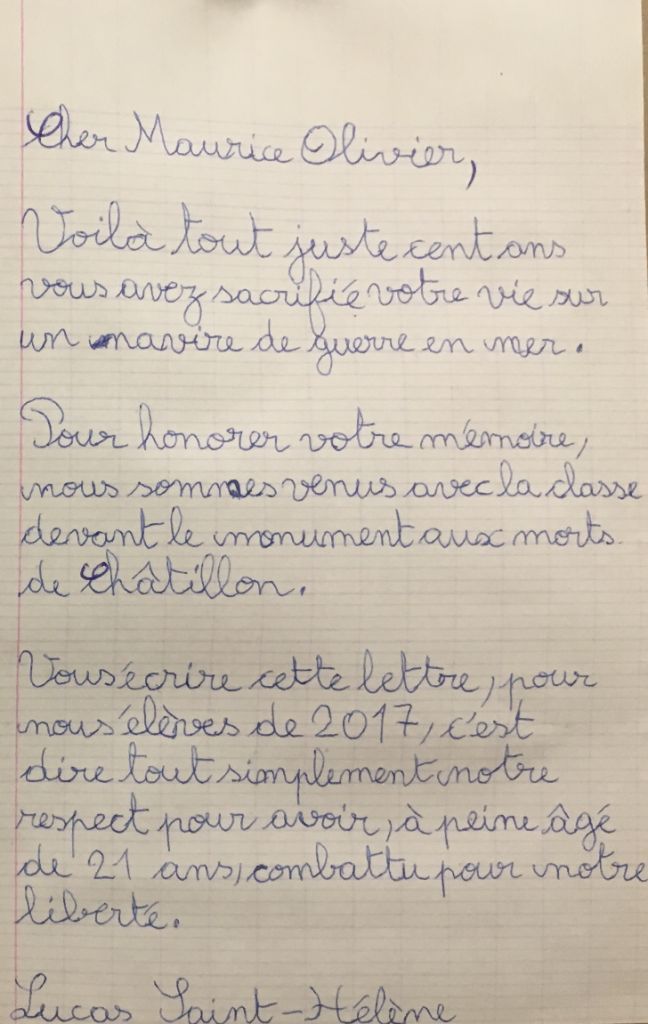 Cher Maurice Olivier,
Voilà tout juste cent ans
vous avez sacrifié votre vie sur
un navire de guerre en mer.
Pour honorer votre mémoire,
nous sommes venus avec la classe
devant le monument aux morts
de Châtillon.
Vous écrire cette lettre, pour
nous élèves de 2017, c'est
dire tout simplement notre
respect pour avoir, à peine âgé
de 21 ans, combattu pour notre
liberté.
Lucas Saint-Hélène